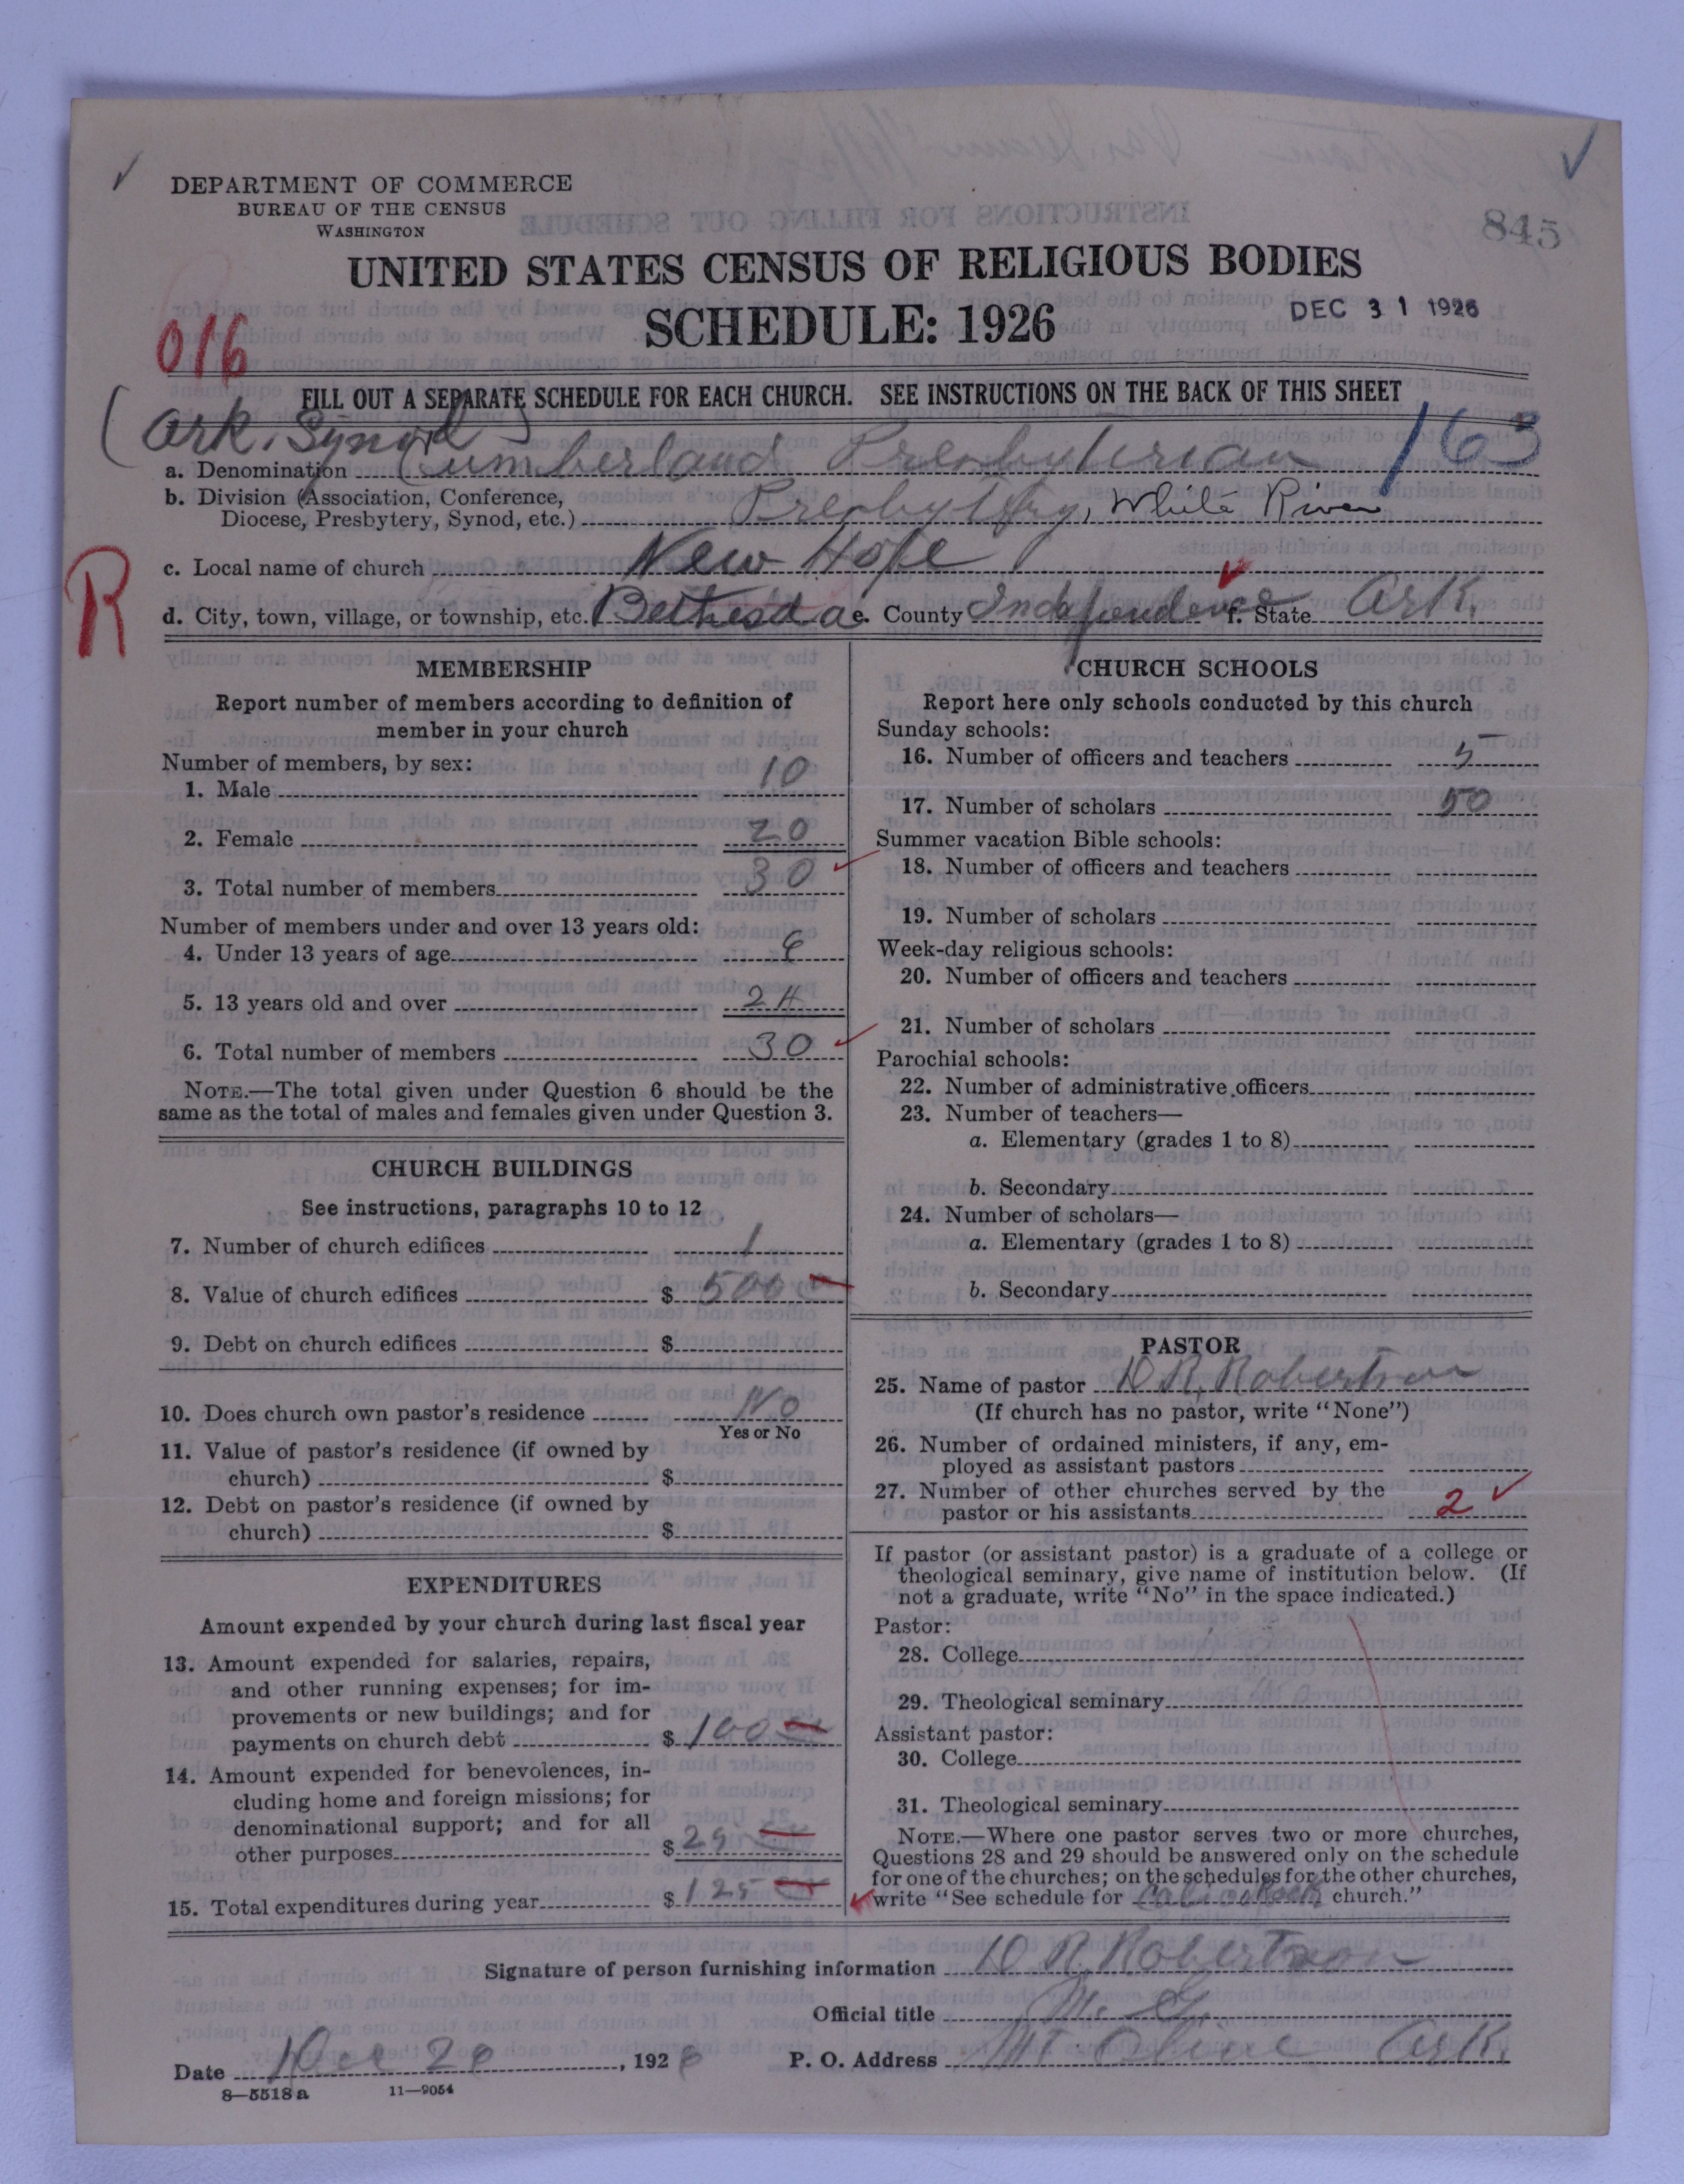 DEPARTMENT OF COMMERCE
BUREAU OF THE CENSUS
WASHINGTON
845
UNITED STATES CENSUS OF RELIGIOUS BODIES
SCHEDULE: 1926
DEC 31 1926
016
FILL OUT A SEPARATE SCHEDULE FOR EACH CHURCH. SEE INSTRUCTIONS ON THE BACK OF THIS SHEET
(Ark. Synod)
163
a. Denomination Cumberland Presbyterian
b. Division (Association, Conference,
Diocese, Presbytery, Synod, etc.) Presbytery, White River
R
c. Local name of church New Hope
d. City, town, village, or township, etc. Bethesda e. County Independence f. State Ark.
MEMBERSHIP
Report number of members according to definition of
member in your church
Number of members, by sex:
1. Male 10
2. Female 20
3. Total number of members 30
Number of members under and over 13 years old:
4. Under 13 years of age 6
5. 13 years old and over 24
6. Total number of members 30
NOTE.—The total given under Question 6 should be the
same as the total of males and females given under Question 3.
CHURCH BUILDINGS
See instructions, paragraphs 10 to 12
7. Number of church edifices 1
8. Value of church edifices $ 500
9. Debt on church edifices $
10. Does church own pastor's residence No
Yes or No
11. Value of pastor's residence (if owned by
church) $
12. Debt on pastor's residence (if owned by
church) $
EXPENDITURES
Amount expended by your church during last fiscal year
13. Amount expended for salaries, repairs,
and other running expenses; for im-
provements or new buildings; and for
payments on church debt $ 100
14. Amount expended for benevolences, in-
cluding home and foreign missions; for
denominational support; and for all
other purposes $ 25
15. Total expenditures during year $ 125
CHURCH SCHOOLS
Report here only schools conducted by this church
Sunday schools:
16. Number of officers and teachers 5
17. Number of scholars 50
Summer vacation Bible schools:
18. Number of officers and teachers
19. Number of scholars
Week-day religious schools:
20. Number of officers and teachers
21. Number of scholars
Parochial schools:
22. Number of administrative officers
23. Number of teachers—
a. Elementary (grades 1 to 8)
b. Secondary
24. Number of scholars—
a. Elementary (grades 1 to 8)
b. Secondary
PASTOR
25. Name of pastor D R. Robertson
(If church has no pastor, write "None")
26. Number of ordained ministers, if any, em-
ployed as assistant pastors
27. Number of other churches served by the
pastor or his assistants 2
If pastor (or assistant pastor) is a graduate of a college or
theological seminary, give name of institution below. (If
not a graduate, write "No" in the space indicated.)
Pastor:
28. College
29. Theological seminary
Assistant pastor:
30. College
31. Theological seminary
NOTE.—Where one pastor serves two or more churches,
Questions 28 and 29 should be answered only on the schedule
for one of the churches; on the schedules for the other churches,
write "See schedule for Calico Rock church."
Signature of person furnishing information D R. Robertson
Official title M. G.
Date Dec 20, 1926 P. O. Address Mt. Olive Ark.
8—5518 a 11—9054